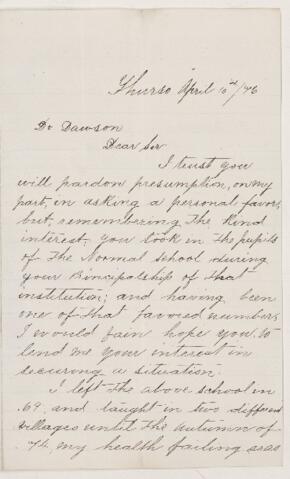 Thurso April 10th/76
Dr Dawson
Dear Sir
I trust you
will pardon presumption, on my
part, in asking a personal favor,
but, remembering the kind
interest, you took in the pupils
of the Normal school during
your Principalship of that
institution; and having been
one of that favored number,
I would fain hope you, to
lend me your interest in
securing a situation.
I left the above school in
69, and taught in two different
villages until the autumn of
74, my health failing